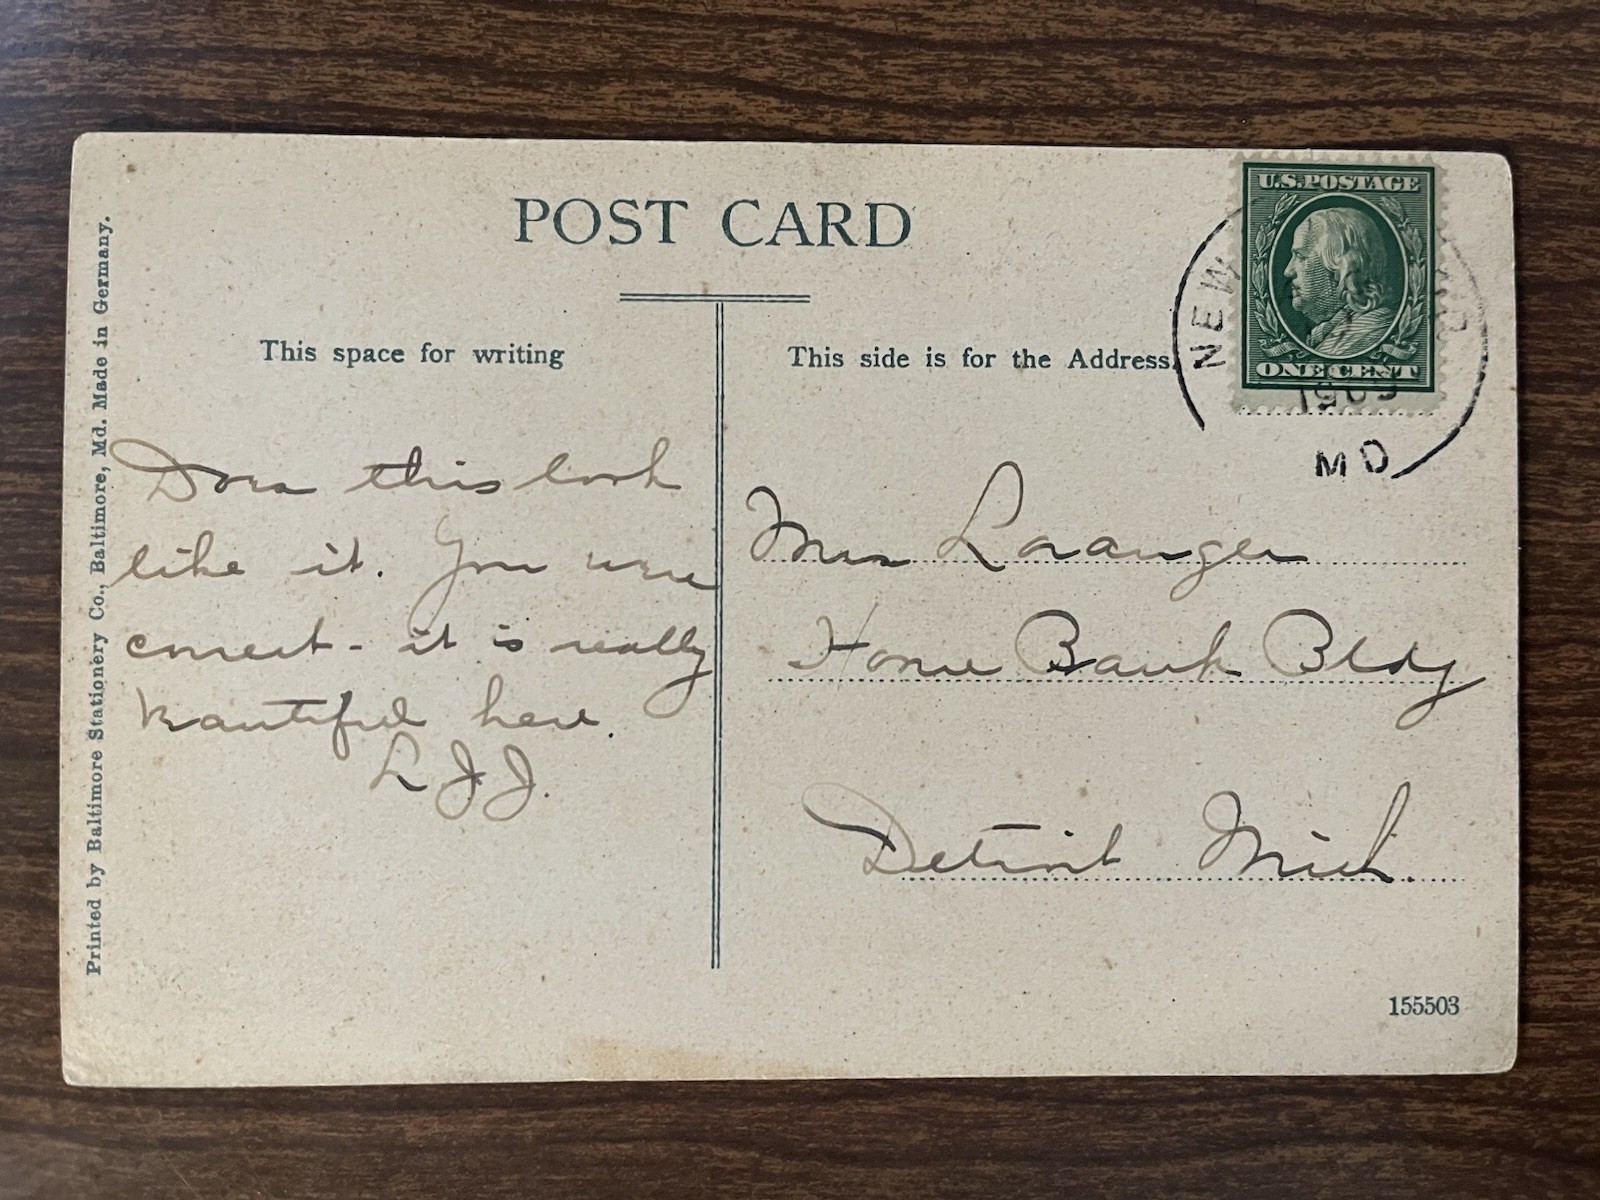 POST CARD
This space for writing
This side is for the Address.
U.S. POSTAGE
ONE CENT
NEW
1909
MD
Does this look
like it. You were
correct - it is really
beautiful here.
L J J.
Mrs Loranger
Home Bank Bldg
Detroit Mich.
155503
Printed by Baltimore Stationery Co., Baltimore, Md. Made in Germany.